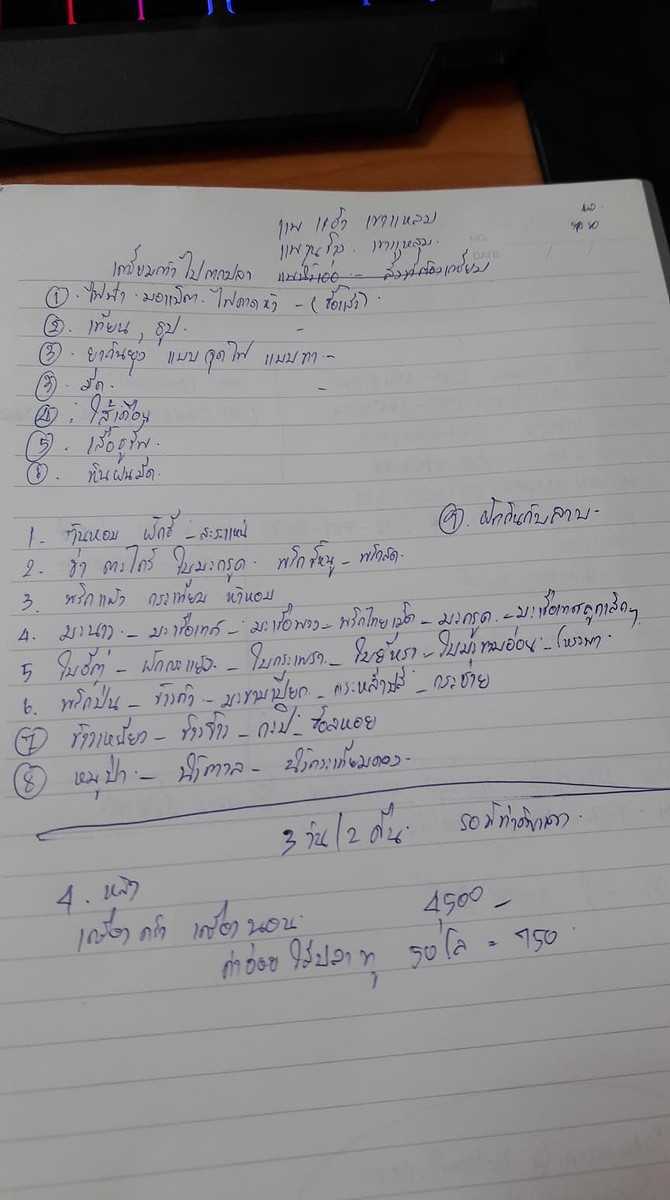 แพ เขาแหลม
แพ เขาแหลม
เตรียมตัวไปตกปลา สิ่งที่ต้องเตรียม
① ไฟฟ้า มอเตอร์ ไฟคาดหัว -
② เทียน, ธูป -
③ ยากันยุง แบบจุดไฟ แบบทา -
มีด -
④ ไส้เดือน
⑤ เสื้อชูชีพ
⑥ หินฝนมีด
1. ต้นหอม ผักชี - สะระแหน่
ผักกินกับลาบ -
2. ข่า ตะไคร้ ใบมะกรูด พริกขี้หนู - พริกสด
3. พริกแห้ง กระเทียม หัวหอม
4. มะนาว - มะเขือเทศ - มะเขือพวง - พริกไทยเม็ด - มะกรูด - มะเขือเทศลูกเล็กๆ
5 ใบ - ผักกะแยง - ใบกระเพรา - ใบยี่หร่า - ใบมะขามอ่อน - โหระพา
6. พริกป่น - ข้าวคั่ว - มะขามเปียก - กระหล่ำปลี - กระชาย
⑦ ข้าวเหนียว - ข้าวจ้าว - กะปิ - ซอสหอย
⑧ หมูป่า - น้ำตาล - น้ำกระเทียมดอง
3 วัน/2 คืน
4. หลัง
เครื่องครัว เครื่องนอน 4,500 -
ค่าอ่อย ไส้ปลาทู 50 โล = 750